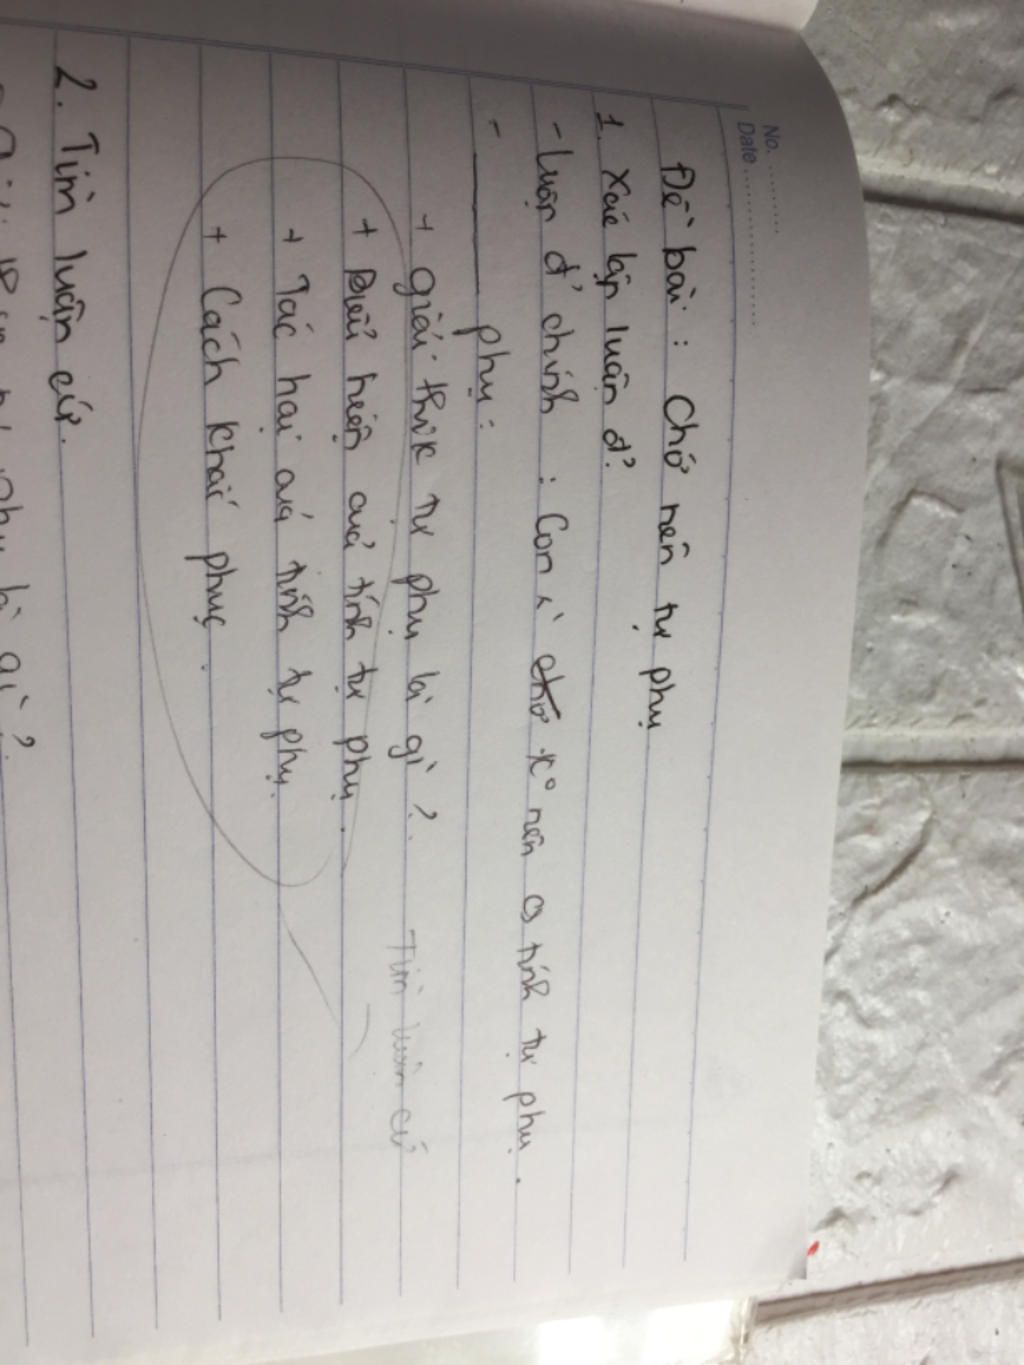 No. ............
Date ............
Đề bài : Chớ nên tự phụ
1. Xác lập luận đ'?
- Luận đ' chính : Con ng` chớ k° nên có tính tự phụ.
- ——— phụ :
+ giải thík tự phụ là gì ?
Tìm luận cứ
+ Biểu hiện của tính tự phụ.
+ Tác hại của tính tự phụ.
+ Cách khắc phục.
2. Tìm luận cứ.
phụ là gì ?